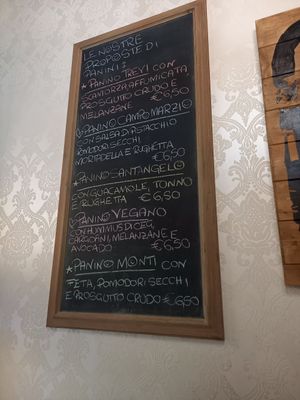 LE NOSTRE
PROPOSTE DI
PANINI:
★ PANINO TREVI CON
SCAMORZA AFFUMICATA,
PROSCIUTTO CRUDO E
MELANZANE €6,50
PANINO CAMPO MARZIO
CON SALSA DI PISTACCHIO
POMODORI SECCHI
MORTADELLA E RUGHETTA
€6,50
★ PANINO SANTANGELO
CON GUACAMOLE, TONNO
E RUGHETTA €6,50
PANINO VEGANO
CON HUMMUS DI CECI,
CARCIOFINI, MELANZANE E
AVOCADO €6,50
★ PANINO MONTI CON
FETA, POMODORI SECCHI
E PROSCIUTTO CRUDO €6,50